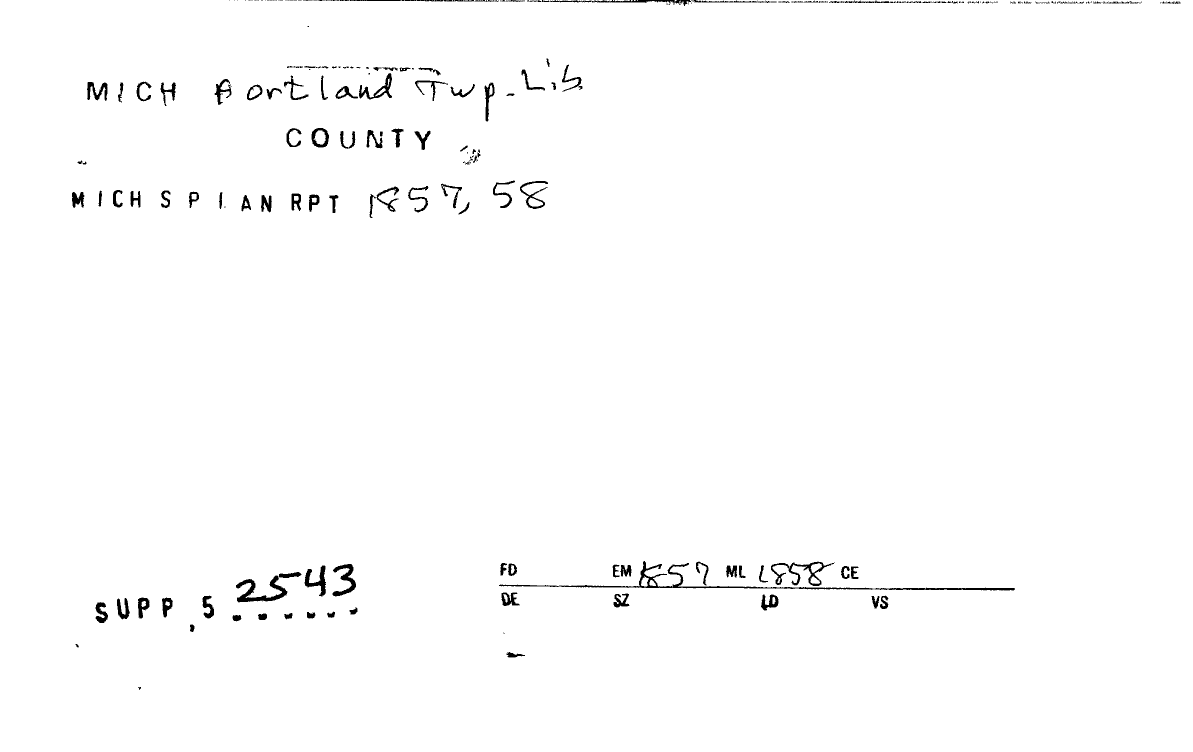 MICH Portland Twp. Lib
COUNTY
MICH S P L AN RPT 1857, 58
SUPP, 5 2543
FD EM 1857 ML 1858 CE
DE SZ LD VS